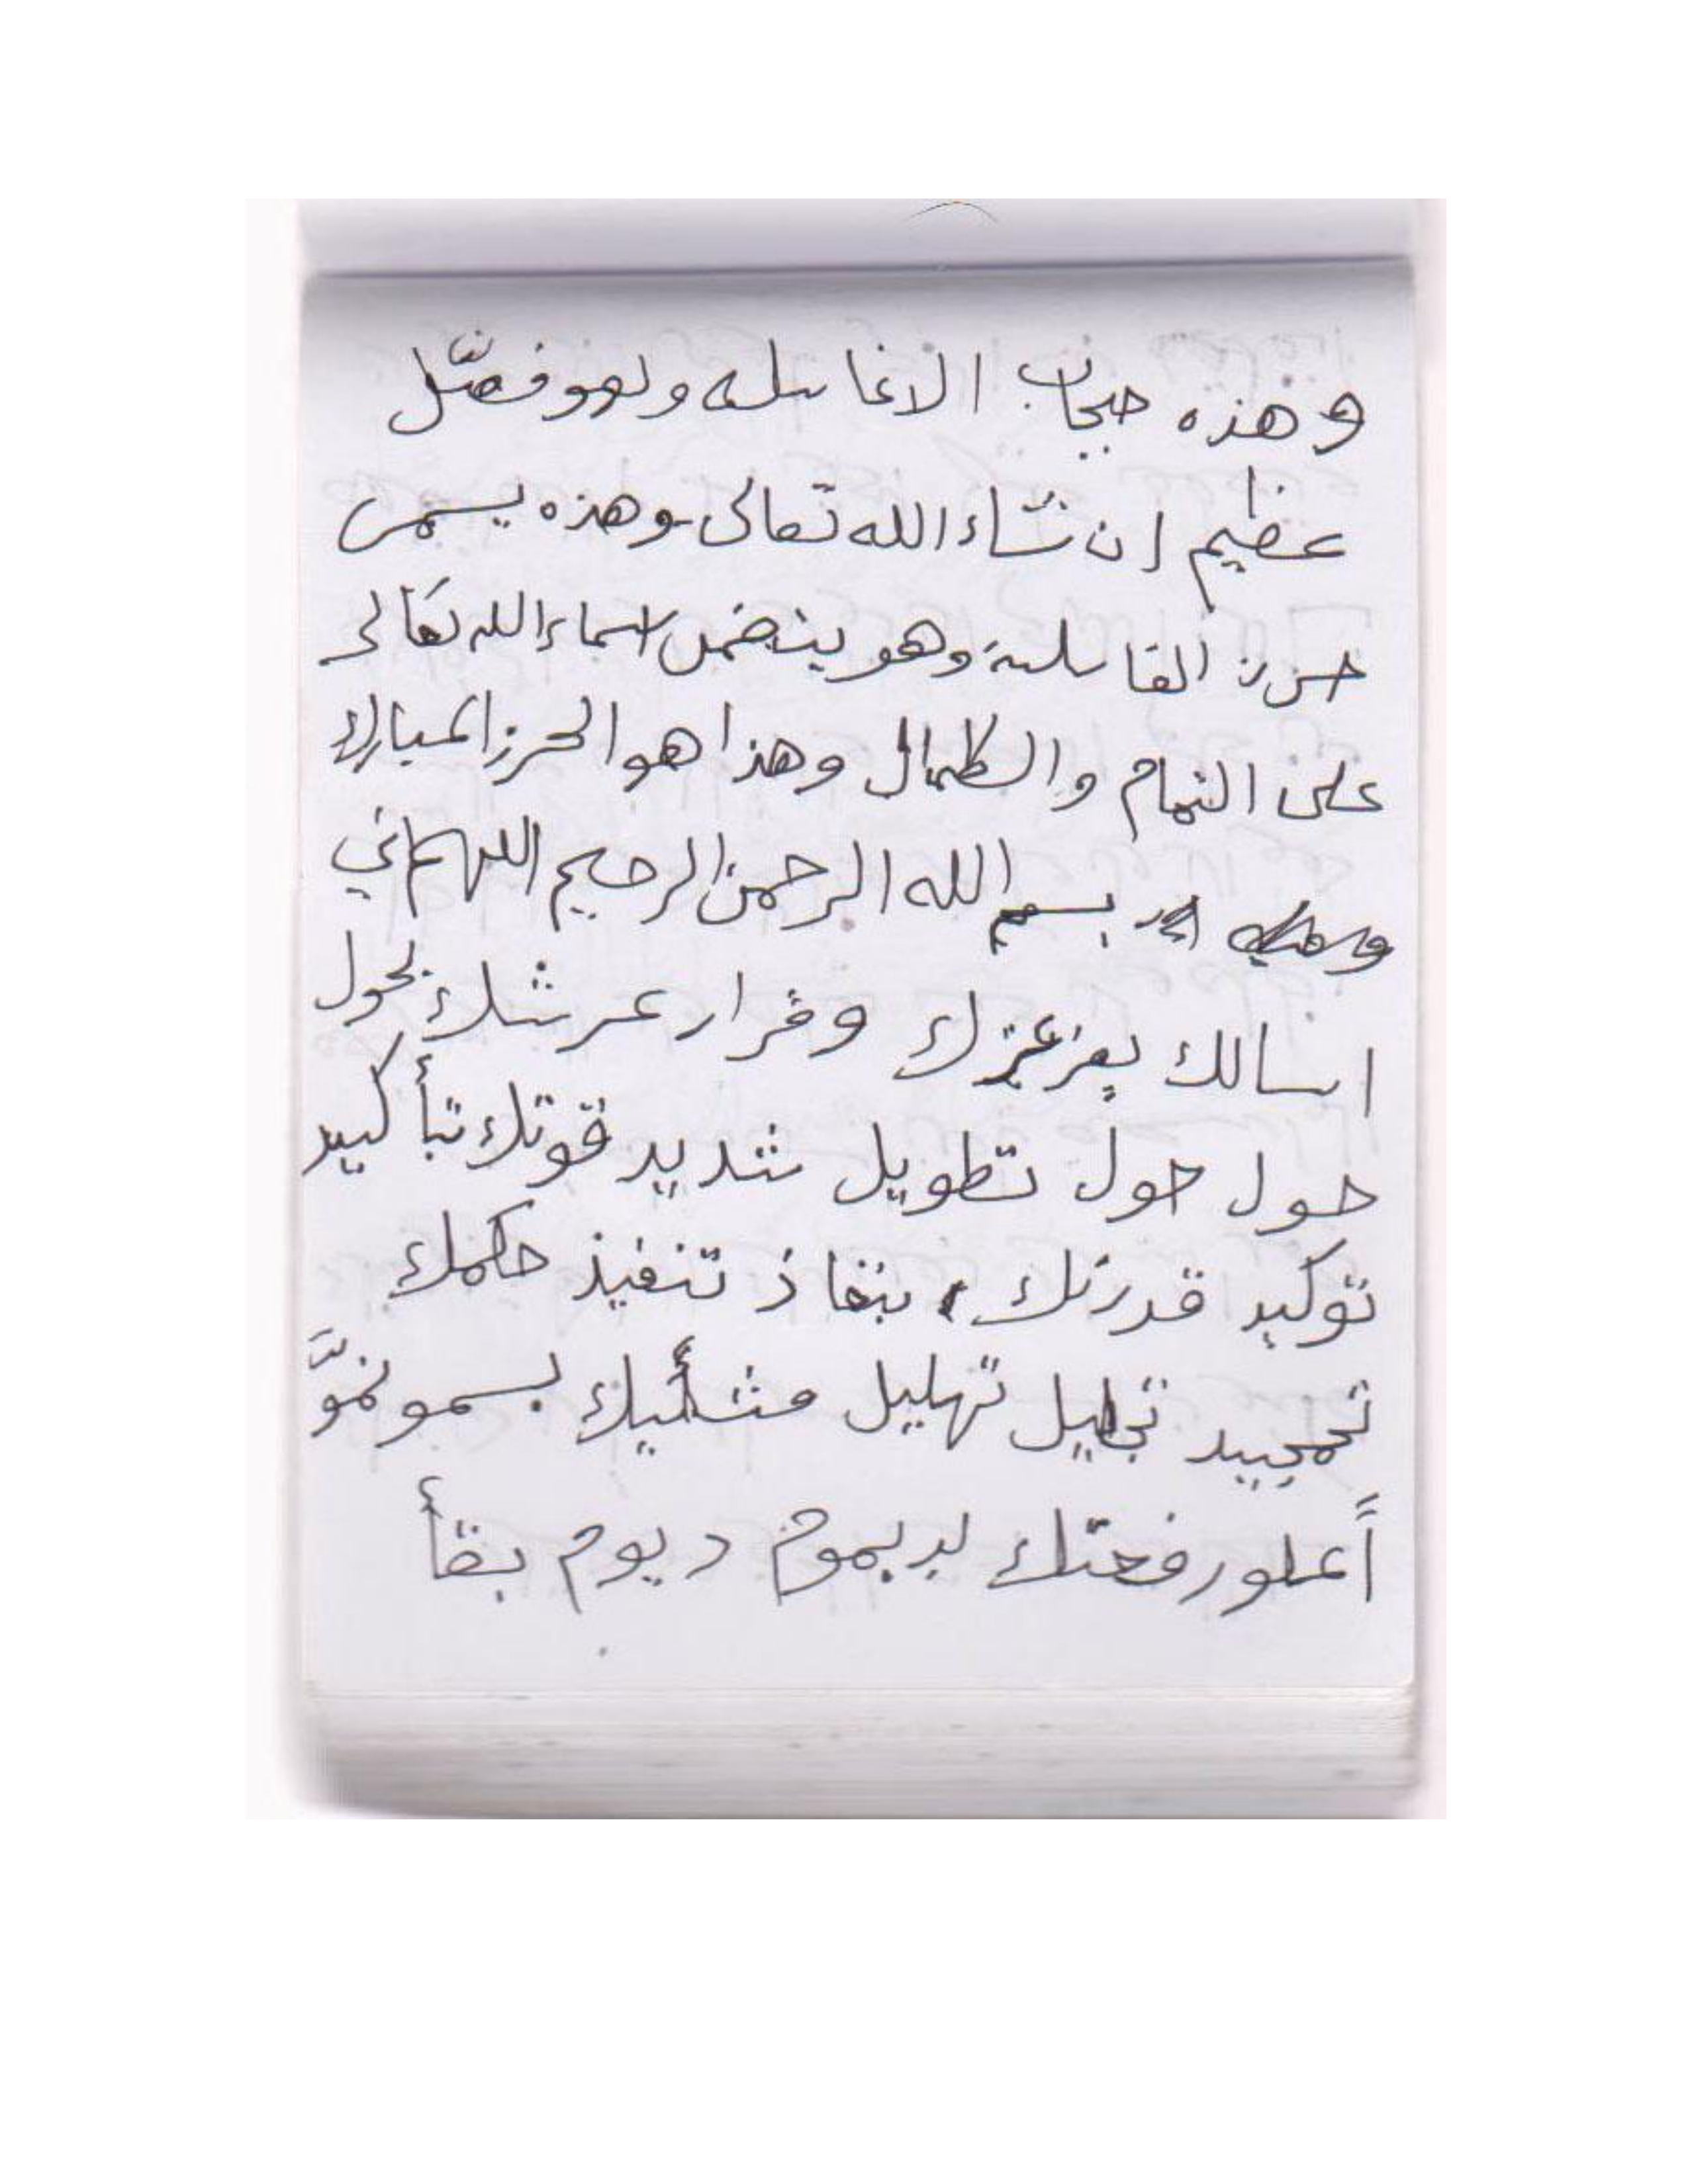 وهذه حجاب الاغاسله وهو فضل
عظيم إن شاء الله تعالى وهذه يسمى
حرز الغاسلة وهو يتضمن اسماء الله تعالى
على التمام والكمال وهذا هو الحرز المبارك
بسم الله الرحمن الرحيم اللهم اني
اسالك بعز عزك وقرار عرشك بحول
حول حول تطويل شديد قوتك تبأكيد
توكيد قدرتك، بنفاذ تنفيذ حكمك
تمجيد تجليل تهليل بسمو نموّ
أعلو رفعتك بديموم ديوم بقأ